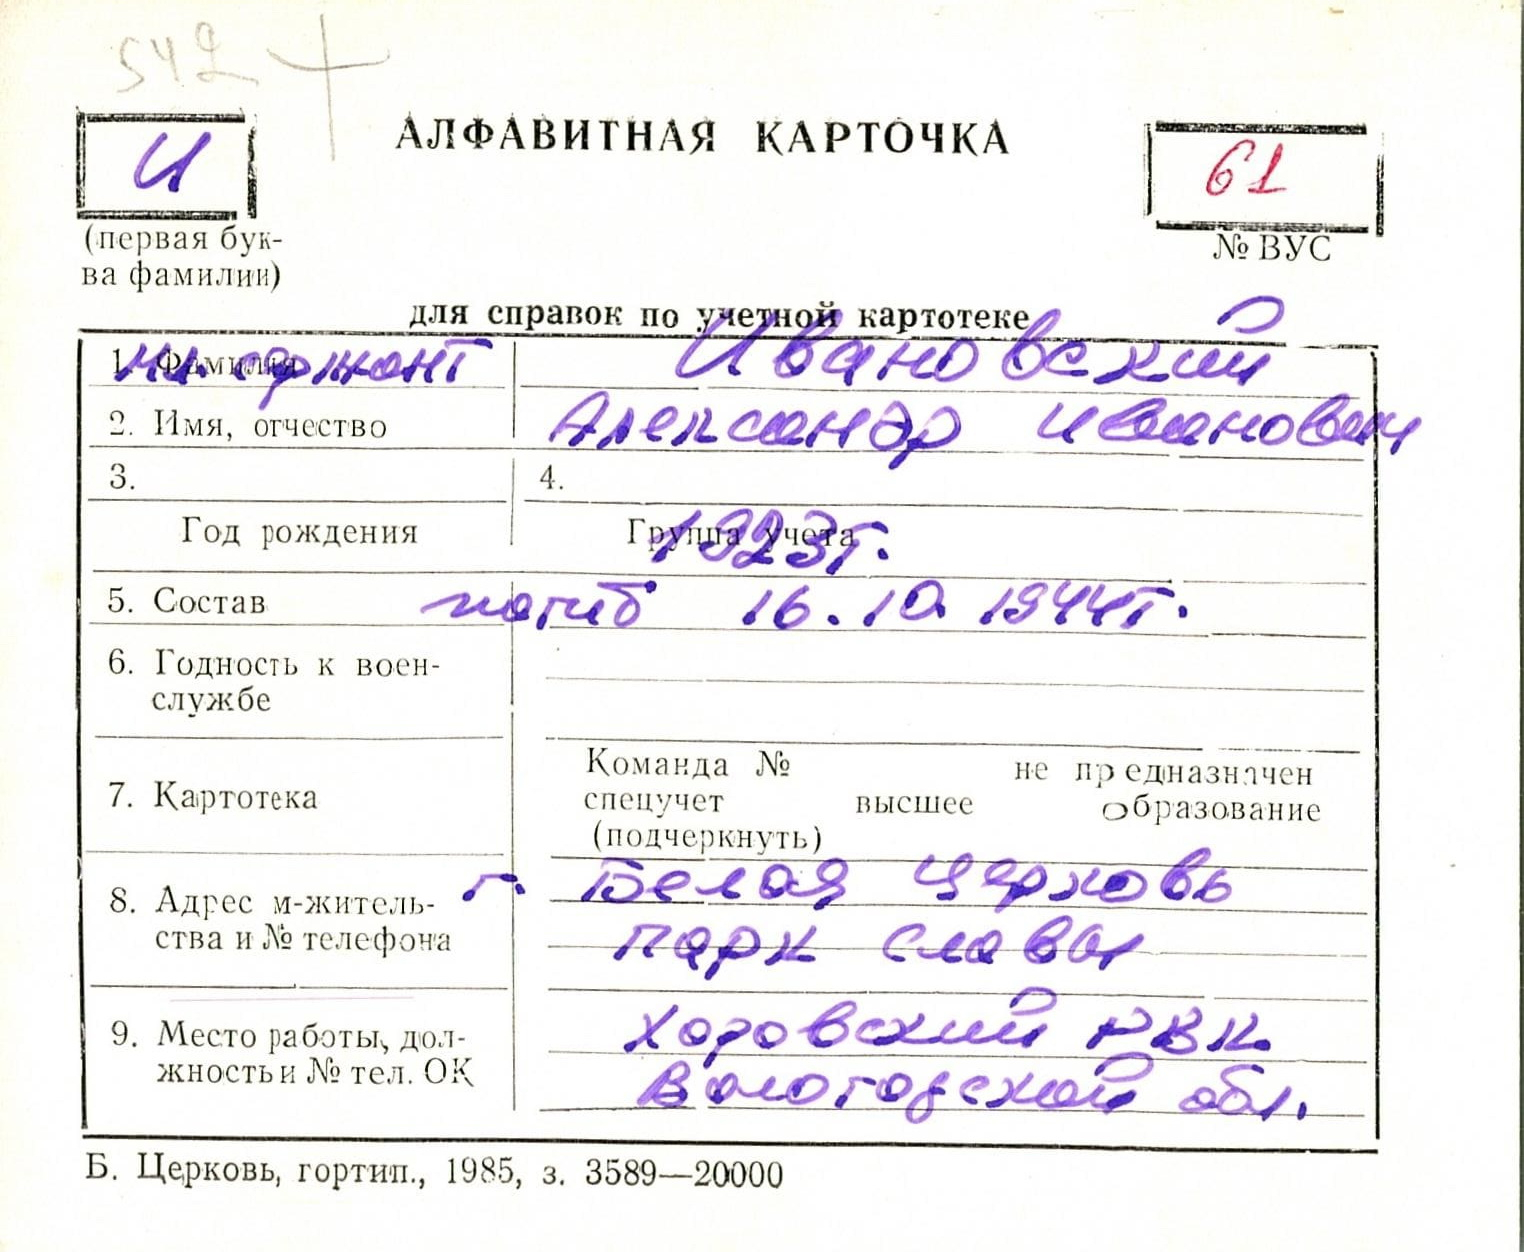 542
И
АЛФАВИТНАЯ КАРТОЧКА
61
(первая бук-
ва фамилии)
№ ВУС
для справок по учетной картотеке
1. Фамилия мл. сержант Ивановский
2. Имя, отчество Александр Иванович
3. 4.
Год рождения Группа учета 1923г.
5. Состав погиб 16.10.1944г.
6. Годность к воен-
службе
Команда № не предназначен
7. Картотека спецучет высшее образование
(подчеркнуть)
8. Адрес м-житель- г. Белая Церковь
ства и № телефона парк славы
9. Место работы, дол- Харовский РВК
жность и № тел. ОК Вологодской обл.
Б. Церковь, гортип., 1985, з. 3589—20000